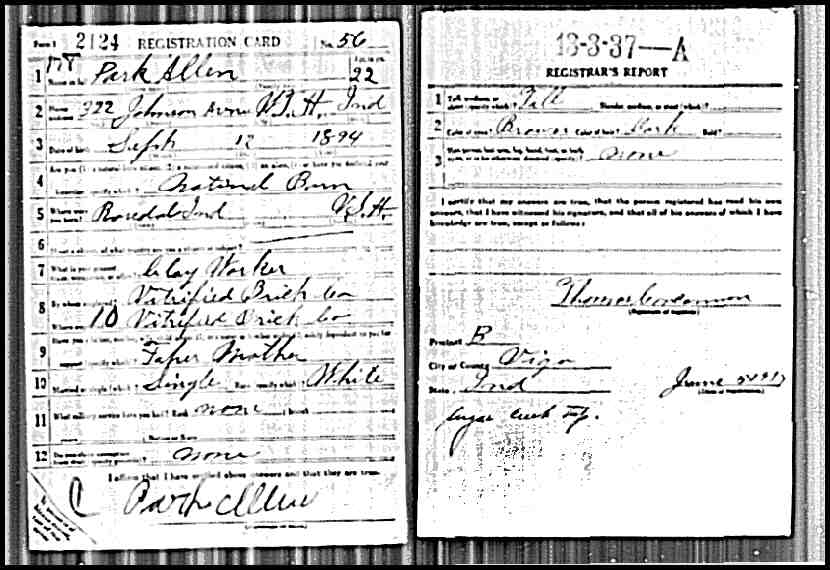 Form 1 2124 REGISTRATION CARD No. 56
1 Park Allen Age, in yrs. 22
2 Home address 322 Johnson Ave W.T.H. Ind
3 Date of birth Sept 12 1894
4 Are you (1) a natural born citizen, (2) a naturalized citizen, (3) an alien, (4) or have you declared your
intention (specify which)? Natural Born
5 Where were you born? Rosedale Ind U.S.A.
6 If not a citizen, of what country are you a citizen or subject?
7 What is your present trade, occupation, or office? Clay Worker
8 By whom employed? Vitrified Brick Co
Where employed? Vitrified Brick Co
9 Have you a father, mother, wife, child under 12, or a sister or brother under 12, solely dependent on you for
support (specify which)? Mother
10 Married or single (which)? Single Race (specify which)? White
11 What military service have you had? Rank none branch
years Nation or State
12 Do you claim exemption from draft (specify grounds)? none
I affirm that I have verified above answers and that they are true.
Park Allen
13-3-37—A
REGISTRAR'S REPORT
1 Tall, medium, or short (specify which)? Tall Slender, medium, or stout (which)?
2 Color of eyes? Brown Color of hair? Dark Bald?
3 Has person lost arm, leg, hand, foot, or both
eyes, or is he otherwise disabled (specify)? none
I certify that my answers are true, that the person registered has read his own
answers, that I have witnessed his signature, and that all of his answers of which I have
knowledge are true, except as follows:
(Signature of registrar)
Precinct B
City or County Vigo
State Ind June 5 1917
(Date of registration)
Sugar Creek Tp.